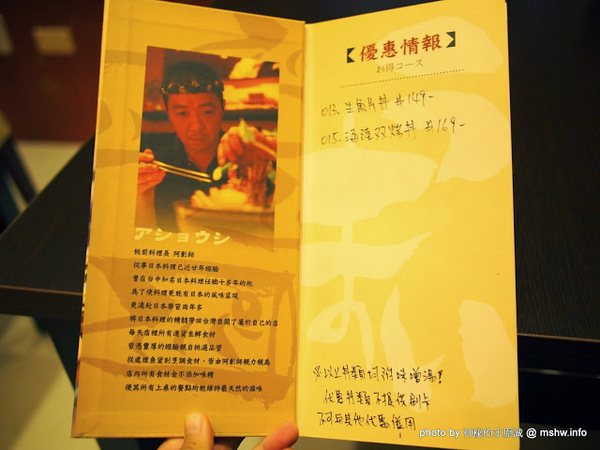 アショウシ
板前料理長 阿彰師
從事日本料理已近廿年經驗
曾在台中知名日本料理任職十多年的他
為了使料理更能有日本的風味呈現
更遠赴日本學習兩年多
將日本料理的精髓帶回台灣並開了屬於自己的店
每天店裡所有進貨生鮮食材
皆憑豐厚的經驗親自挑選品管
從處理魚貨到烹調食材,皆由阿彰師親力親為
店內所有食材全不添加味精
使其所有上桌的餐點均能維持最天然的滋味
【優惠情報】
お得コース
013. 生魚片丼 $149-
015. 海陸双烤丼 $169-
※以上丼類均附味增湯!
優惠丼類不提供刷卡
不可與其他優惠併用
photo by @ mshw.info